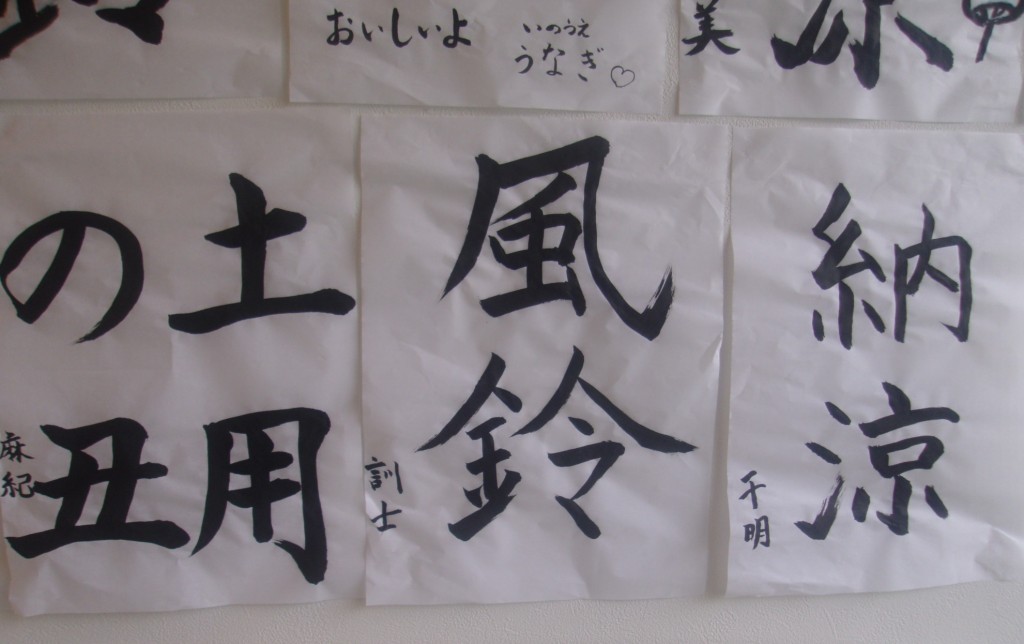 おいしいよ
いのうえ
うなぎ♡
美
土用
の丑
麻紀
風鈴
訓士
納涼
千明